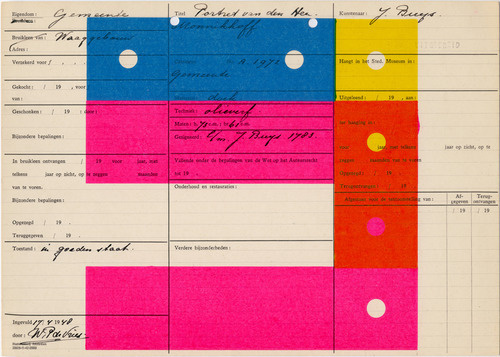 Eigendom: Gemeente
Bruikleen van: Waaggebouw
(Adres:
Verzekerd voor f :
Gekocht: / 19 , voor f
van:
Geschonken: / 19 : door:
Bijzondere bepalingen:
In bruikleen ontvangen / 19 voor jaar, met
telkens jaar op zicht, op te zeggen maanden
van te voren.
Bijzondere bepalingen:
Opgezegd / 19 .
Teruggegeven / 19 .
Toestand: in goeden staat.
Ingevuld 17-4 1948
door:
Titel Portret van den Heer
A 1972
Gemeente
doek
Techniek: olieverf
Maten: h.
Gesigneerd: J. Buys 1782.
Vallende onder de bepalingen van de Wet op het Auteursrecht
tot 19 .
Onderhoud en restauratie:
Verdere bijzonderheden:
Kunstenaar: J. Buys
Hangt in het Sted. Museum in:
Uitgeleend: / 19 , aan:
ter hanging in:
voor jaar, met telkens jaar op zicht, op te
zeggen maanden van te voren.
Opgezegd: / 19
Teruggegeven: / 19
Afspraken aan de uitleenregeling van:
Af-
gegeven
Terug-
ontvangen
/ 19 / 19
/ 19 / 19